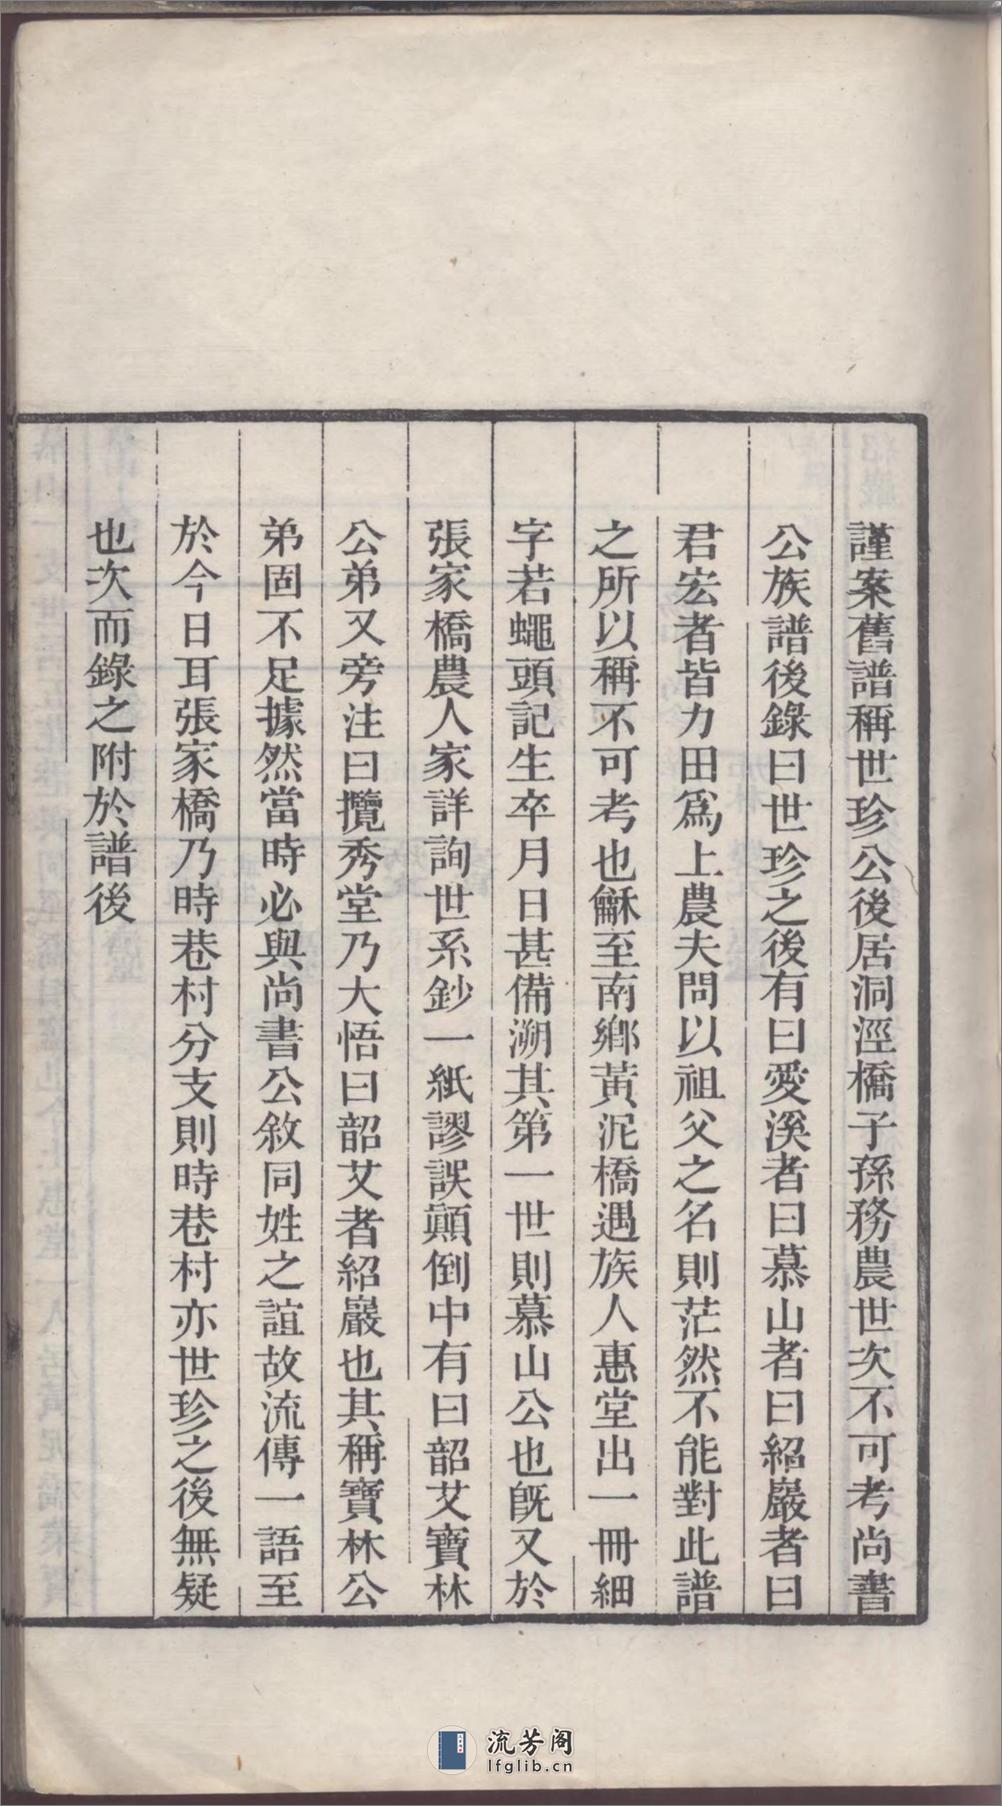 謹案舊譜稱世珍公後居洞涇橋子孫務農世次不可考尚書
公族譜後錄曰世珍之後有曰愛溪者曰慕山者曰紹巖者曰
君宏者皆力田爲上農夫問以祖父之名則茫然不能對此譜
之所以稱不可考也龢至南鄉黃泥橋遇族人惠堂出一冊細
字若蠅頭記生卒月日甚備溯其第一世則慕山公也旣又於
張家橋農人家詳詢世系鈔一紙謬誤顛倒中有曰韶艾寶林
公弟又旁注曰攬秀堂乃大悟曰韶艾者紹巖也其稱寶林公
弟固不足據然當時必與尚書公敘同姓之誼故流傳一語至
於今日耳張家橋乃時巷村分支則時巷村亦世珍之後無疑
也次而錄之附於譜後
流芳阁
lfglib.cn